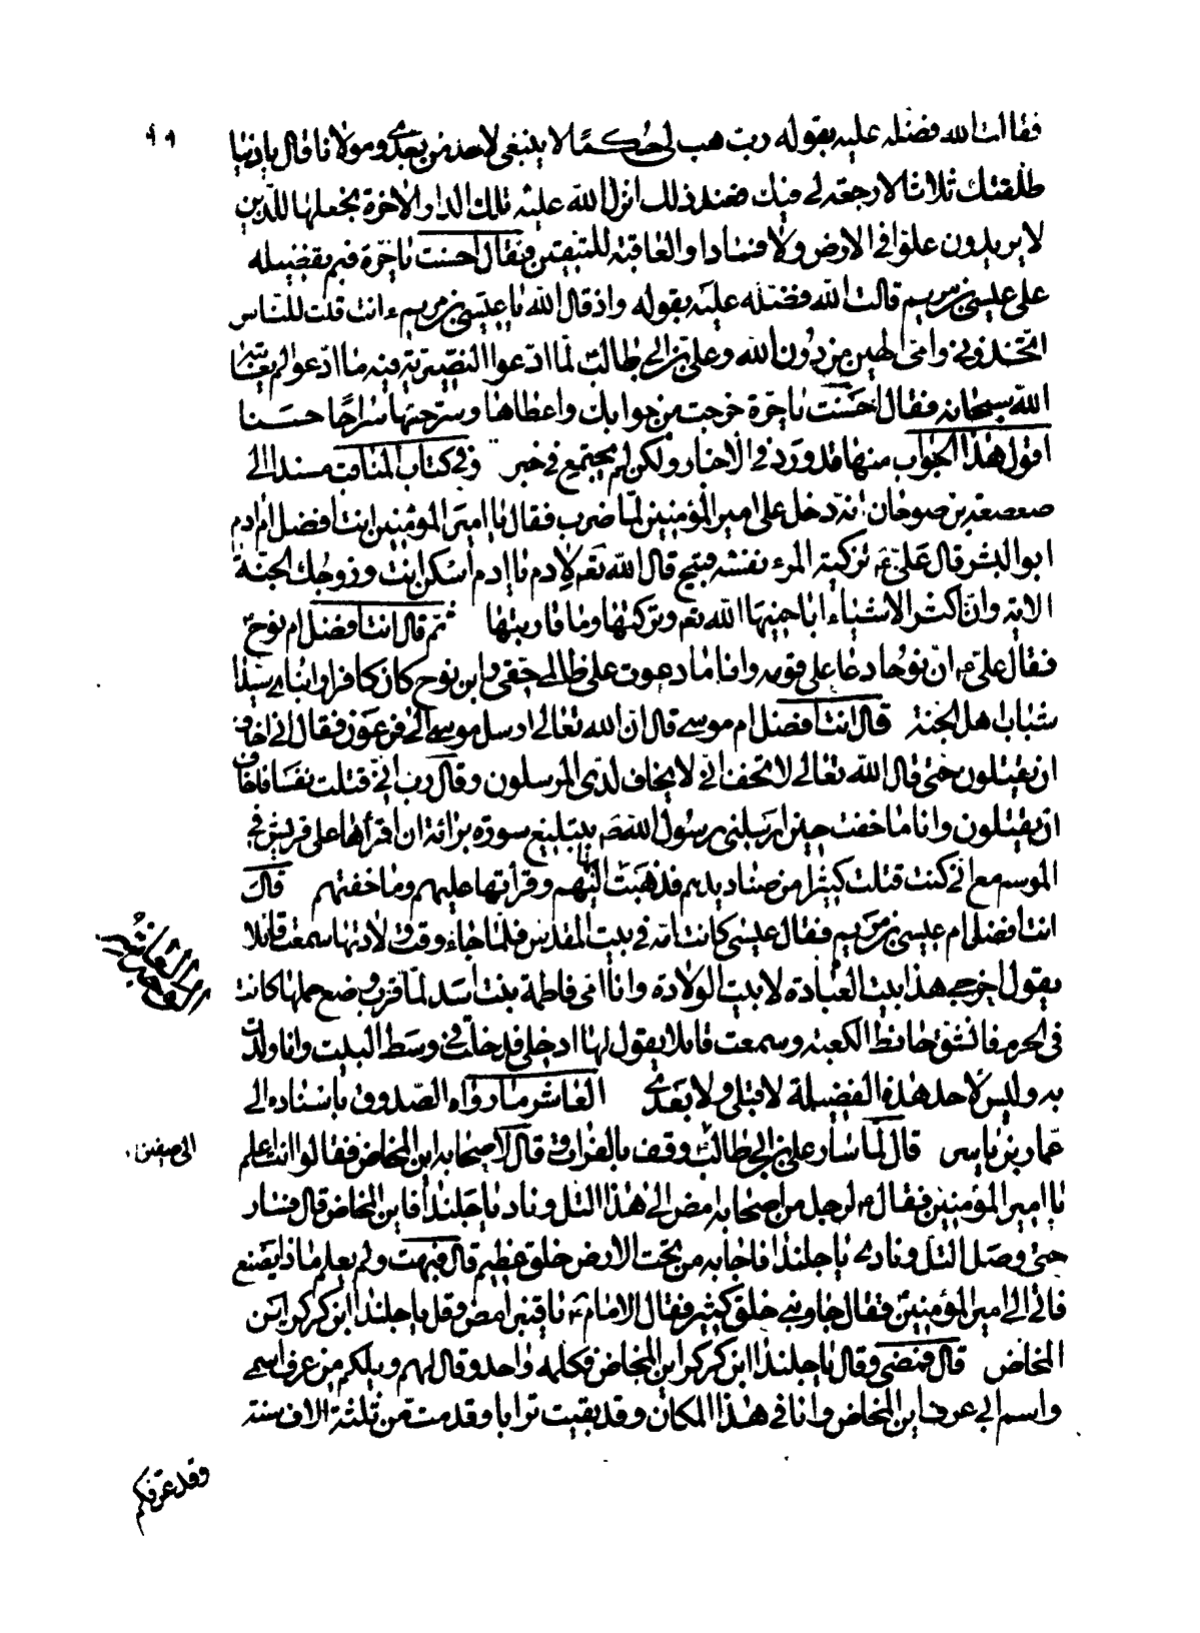 ٩٩
فقالت الله فضله عليه بقوله رب هب لي حكمًا لا ينبغي لاحد من بعدي ومولانا قال يا دنيا
طلقتك ثلاثا لا رجعة لي فيك فعند ذلك انزل الله عليه تلك الدار الاخرة نجعلها للذين
لا يريدون علوا في الارض ولا فسادا والعاقبة للمتقين فقال احسنت يا حرة فبم تفضيله
على عيسى بن مريم قالت الله فضله عليه بقوله واذ قال الله يا عيسى بن مريم ءانت قلت للناس
اتخذوني وامي الهين من دون الله وعلي بن ابي طالب لما ادعوا النصيرية فيه ما ادعو لم يعاتبه
الله سبحانه فقال احسنت يا حرة خرجت من جوابك واعطاها وسرحها سراحًا حسنا
اقول هذا الجواب منها قد ورد في الاخبار ولكن لم يجتمع في خبر وفي كتاب المناقب مسندا الى
صعصعة بن صوحان انه دخل على امير المؤمنين لما ضرب فقال يا امير المؤمنين انت افضل ام ادم
ابو البشر قال علي ع تزكية المرء نفسه قبيح قال الله تعم لادم يا ادم اسكن انت وزوجك الجنة
الاية وان اكثر الاشياء اباحنيها الله تعم وتركتها وما قاربتها ثم قال انت افضل ام نوح
فقال علي ع ان نوحا دعا على قومه وانا ما دعوت على ظالمي حقي وابن نوح كان كافرا وابناي سيدا
شباب اهل الجنة قال انت افضل ام موسى قال ان الله تعالى ارسل موسى الى فرعون فقال اني اخاف
ان يقتلون حتى قال الله تعالى لا تخف اني لا يخاف لدي المرسلون وقال رب اني قتلت نفسا فاخاف
ان يقتلون وانا ما خفت حين ارسلني رسول الله ص بتبليغ سورة برائة ان اقرأها على قريش في
الموسم مع اني كنت قتلت كثيرا من صناديدهم فذهبت اليهم وقرأتها عليهم وما خفتهم قال
انت افضل ام عيسى بن مريم فقال عيسى كانت امه في بيت المقدس فلما جاء وقت ولادتها سمعت قائلا
يقول اخرجي هذا بيت العبادة لا بيت الولادة وانا امي فاطمة بنت اسد لما قرب وضع حملها كانت
في الحرم فانشق حائط الكعبة وسمعت قائلا يقول لها ادخلي فدخلت في وسط البيت وانا ولدت
به وليس لاحد هذه الفضيلة لا قبلي ولا بعدي العاشر ما رواه الصدوق باسناده الى
عمار بن ياسر قال لما سار علي بن ابي طالب وقف بالفرات وقال لاصحابه اين المخاض فقالوا انت اعلم
الى صفين
يا امير المؤمنين فقال ع لرجل من اصحابه امض الى هذا التل وناد يا جلندا فاين المخاض قال فسار
حتى وصل التل ونادى يا جلندا فاجابه من تحت الارض خلق عظيم قال فبهت ولم يعلم ماذا يصنع
فاتى الى امير المؤمنين فقال جاوبني خلق كثير فقال الامام ع يا قنبر امض وقل يا جلندا ابن كركر اين
المخاض قال فمضى وقال يا جلندا ابن كركر اين المخاض فكلمه واحد وقال لهم ويلكم من عرف اسمي
واسم ابي عرف اين المخاض وانا في هذا المكان وقد بقيت ترابا وقد مت من ثلثة الاف سنة
وقد عرفكم